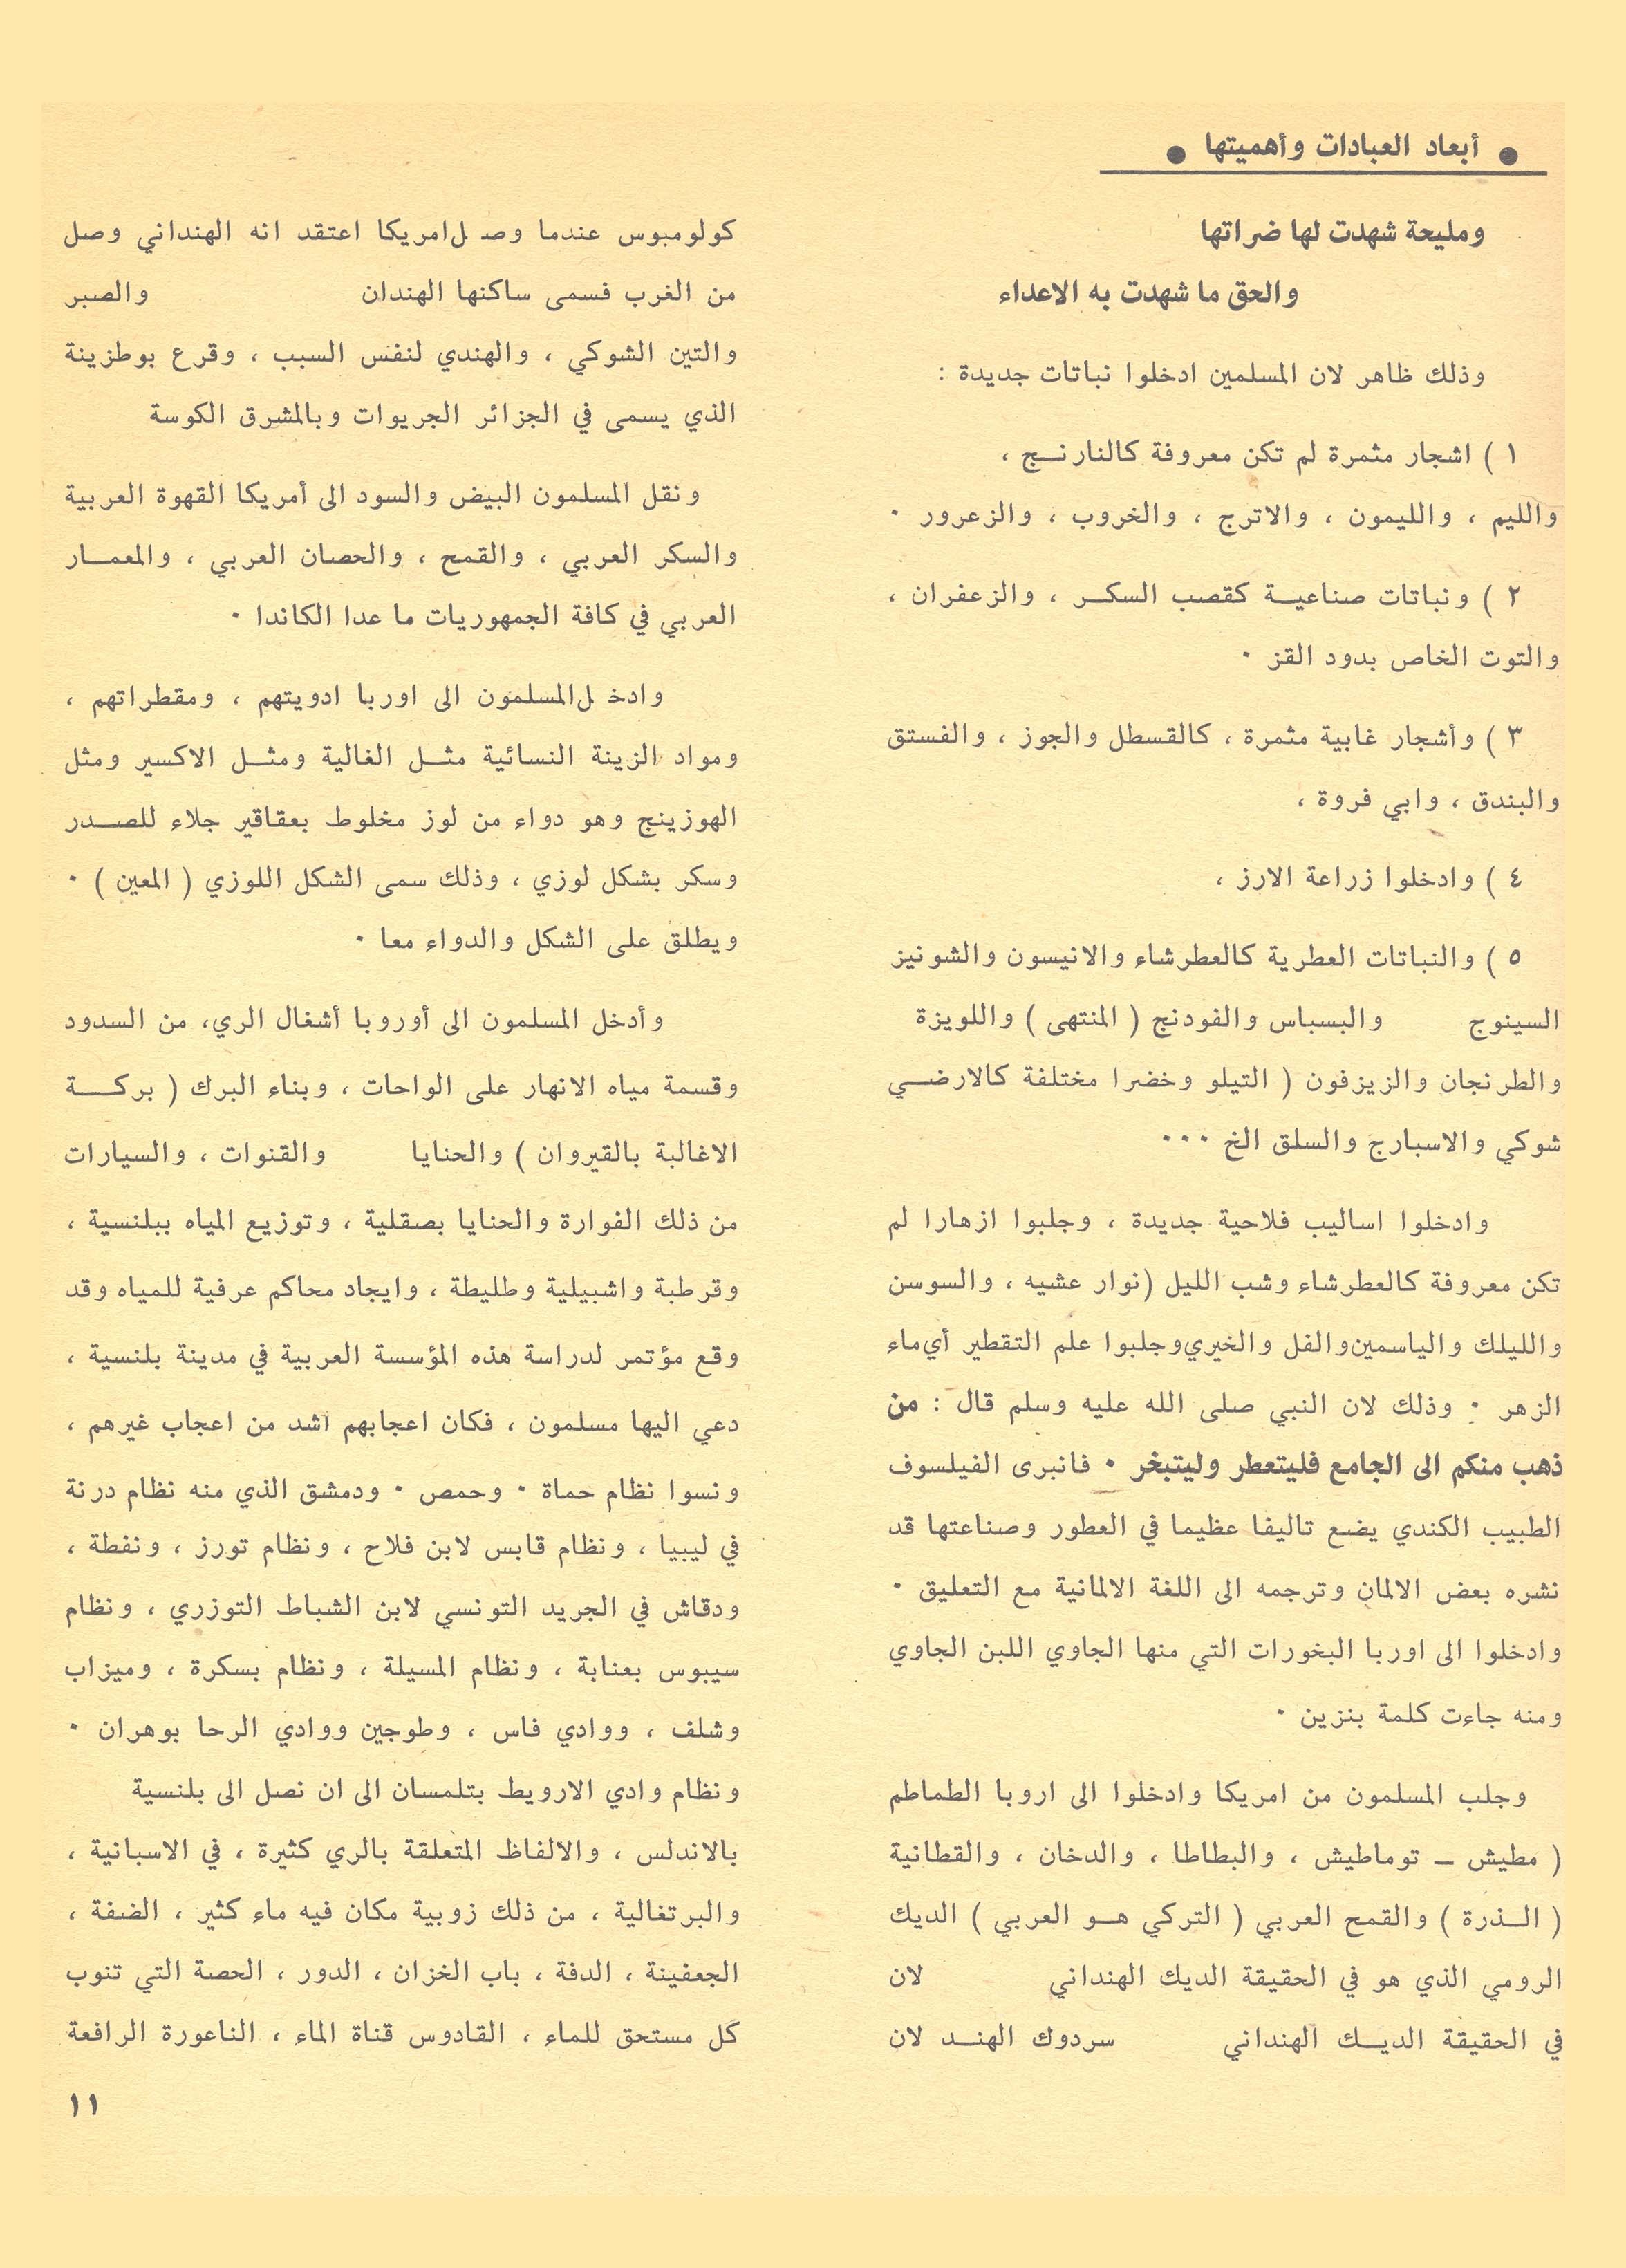 ● أبعاد العبادات وأهميتها ●
ومليحة شهدت لها ضراتها
والحق ما شهدت به الاعداء
وذلك ظاهر لان المسلمين ادخلوا نباتات جديدة :
١ ) اشجار مثمرة لم تكن معروفة كالنارنــج ،
والليم ، والليمون ، والاترج ، والخروب ، والزعرور ٠
٢ ) ونباتات صناعيــة كقصب السكــر ، والزعفران ،
والتوت الخاص بدود القز ٠
٣ ) وأشجار غابية مثمرة ، كالقسطل والجوز ، والفستق
والبندق ، وابي فروة ،
٤ ) وادخلوا زراعة الارز ،
٥ ) والنباتات العطرية كالعطرشاء والانيسون والشونيز
السينوج والبسباس والفودنج ( المنتهى ) واللويزة
والطرنجان والزيزفون ( التيلو وخضرا مختلفة كالارضــي
شوكي والاسبارج والسلق الخ ٠٠٠
وادخلوا اساليب فلاحية جديدة ، وجلبوا ازهارا لم
تكن معروفة كالعطرشاء وشب الليل (نوار عشيه ، والسوسن
والليلك والياسمين والفل والخيري وجلبوا علم التقطير أي ماء
الزهر ٠ وذلك لان النبي صلى الله عليه وسلم قال : من
ذهب منكم الى الجامع فليتعطر وليتبخر ٠ فانبرى الفيلسوف
الطبيب الكندي يضع تاليفا عظيما في العطور وصناعتها قد
نشره بعض الالمان وترجمه الى اللغة الالمانية مع التعليق ٠
وادخلوا الى اوربا البخورات التي منها الجاوي اللبن الجاوي
ومنه جاءت كلمة بنزين ٠
وجلب المسلمون من امريكا وادخلوا الى اروبا الطماطم
( مطيش ــ توماطيش ، والبطاطا ، والدخان ، والقطانية
( الــذرة ) والقمح العربي ( التركي هــو العربي ) الديك
الرومي الذي هو في الحقيقة الديك الهنداني لان
في الحقيقة الديــك الهنداني سردوك الهنــد لان
كولومبوس عندما وصل امريكا اعتقد انه الهنداني وصل
من الغرب فسمى ساكنها الهندان والصبر
والتين الشوكي ، والهندي لنفس السبب ، وقرع بوطزينة
الذي يسمى في الجزائر الجريوات وبالمشرق الكوسة
ونقل المسلمون البيض والسود الى أمريكا القهوة العربية
والسكر العربي ، والقمح ، والحصان العربي ، والمعمــار
العربي في كافة الجمهوريات ما عدا الكاندا ٠
وادخل المسلمون الى اوربا ادويتهم ، ومقطراتهم ،
ومواد الزينة النسائية مثــل الغالية ومثــل الاكسير ومثل
الهوزينج وهو دواء من لوز مخلوط بعقاقير جلاء للصــدر
وسكر بشكل لوزي ، وذلك سمى الشكل اللوزي ( المعين ) ٠
ويطلق على الشكل والدواء معا ٠
وأدخل المسلمون الى أوروبا أشغال الري، من السدود
وقسمة مياه الانهار على الواحات ، وبناء البرك ( بركــــة
الاغالبة بالقيروان ) والحنايا والقنوات ، والسيارات
من ذلك الفوارة والحنايا بصقلية ، وتوزيع المياه ببلنسية ،
وقرطبة واشبيلية وطليطة ، وايجاد محاكم عرفية للمياه وقد
وقع مؤتمر لدراسة هذه المؤسسة العربية في مدينة بلنسية ،
دعي اليها مسلمون ، فكان اعجابهم اشد من اعجاب غيرهم ،
ونسوا نظام حماة ٠ وحمص ٠ ودمشق الذي منه نظام درنة
في ليبيا ، ونظام قابس لابن فلاح ، ونظام تورز ، ونفطة ،
ودقاش في الجريد التونسي لابن الشباط التوزري ، ونظام
سيبوس بعنابة ، ونظام المسيلة ، ونظام بسكرة ، وميزاب
وشلف ، ووادي فاس ، وطوجين ووادي الرحا بوهران ٠
ونظام وادي الارويط بتلمسان الى ان نصل الى بلنسية
بالاندلس ، والالفاظ المتعلقة بالري كثيرة ، في الاسبانية ،
والبرتغالية ، من ذلك زوبية مكان فيه ماء كثير ، الضفة ،
الجعفينة ، الدفة ، باب الخزان ، الدور ، الحصة التي تنوب
كل مستحق للماء ، القادوس قناة الماء ، الناعورة الرافعة
١١